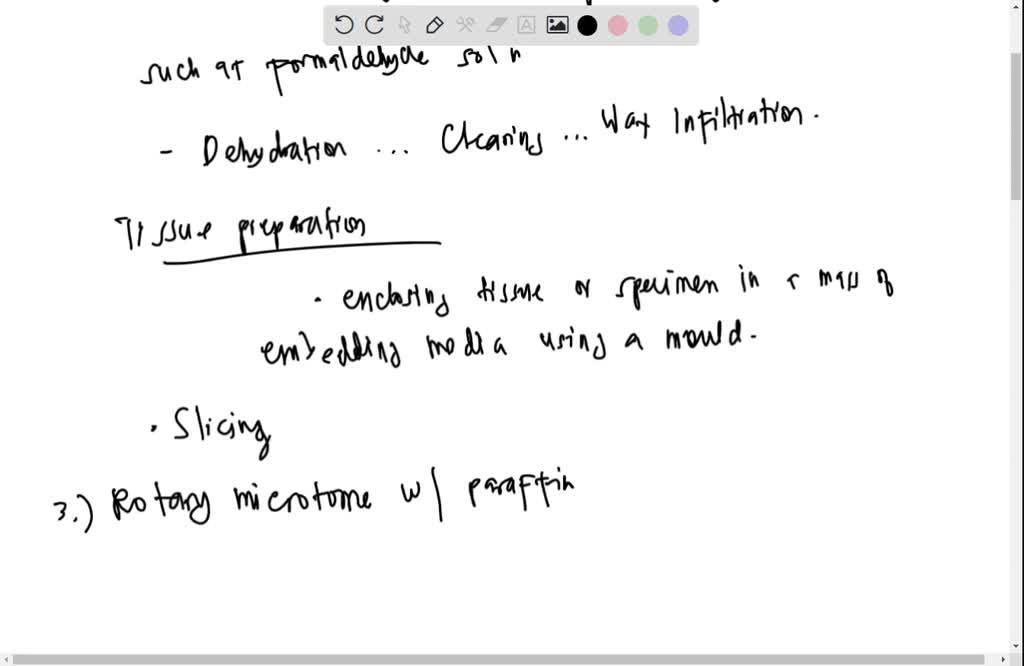 such as formaldehyde soln
- Dehydration ... Clearing ... Wax Infiltration.
Tissue preparation
. enclosing tissue or specimen in a mass of
embedding media using a mould.
. Slicing
3.) Rotary microtome w/ paraffin